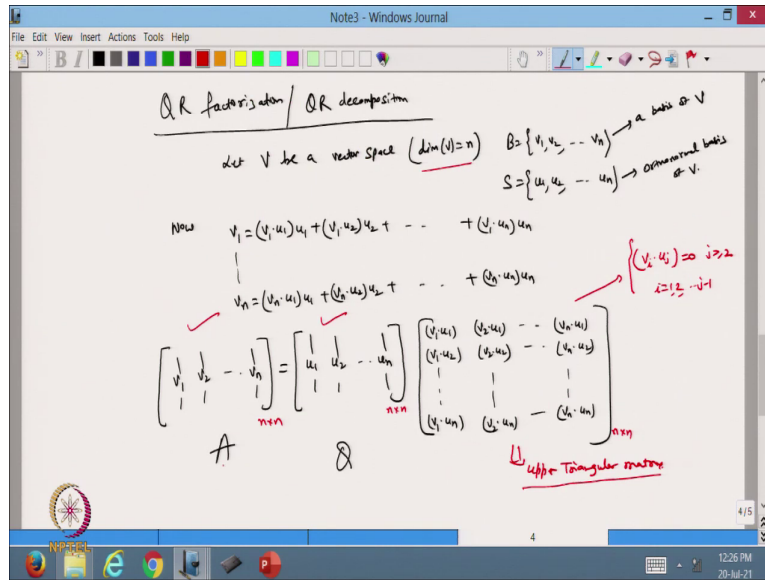 Note3 - Windows Journal
File Edit View Insert Actions Tools Help
QR factorization / QR decomposition
Let V be a vector space (dim(V)=n) B={v₁,v₂, -- vₙ} → a basis of V
S={u₁,u₂, -- uₙ} → orthonormal basis of V.
Now v₁=(v₁·u₁)u₁+(v₁·u₂)u₂+ -- -- +(v₁·uₙ)uₙ
vₙ=(vₙ·u₁)u₁+(vₙ·u₂)u₂+ -- -- +(vₙ·uₙ)uₙ
{(vᵢ·uⱼ)=0 j≥2
i=1,2 --j-1
[v₁ v₂ -- vₙ]n×n = [u₁ u₂ -- uₙ]n×n
(v₁·u₁) (v₂·u₁) -- (vₙ·u₁)
(v₁·u₂) (v₂·u₂) -- (vₙ·u₂)
(v₁·uₙ) (v₂·uₙ) — (vₙ·uₙ)
n×n
A Q
⇓ upper Triangular matrix
NPTEL
4/5
4
12:26 PM
20-Jul-21